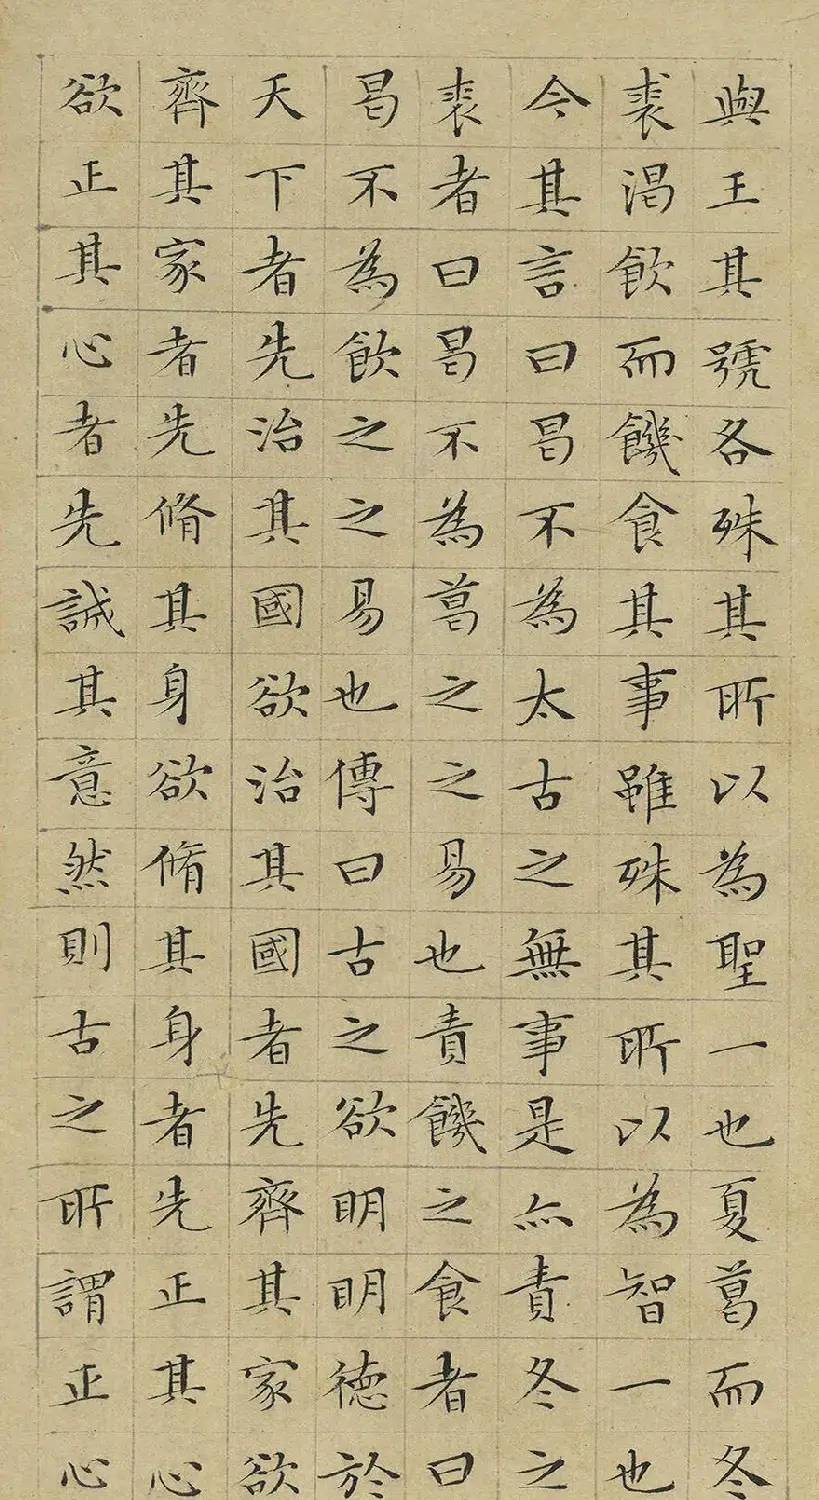 與王其號各殊其所以為聖一也夏葛而冬
裘渴飲而饑食其事雖殊其所以為智一也
今其言曰曷不為太古之無事是亦責冬之
裘者曰曷不為葛之之易也責饑之食者曰
曷不為飲之之易也傳曰古之欲明明德於
天下者先治其國欲治其國者先齊其家欲
齊其家者先脩其身欲脩其身者先正其心
欲正其心者先誠其意然則古之所謂正心